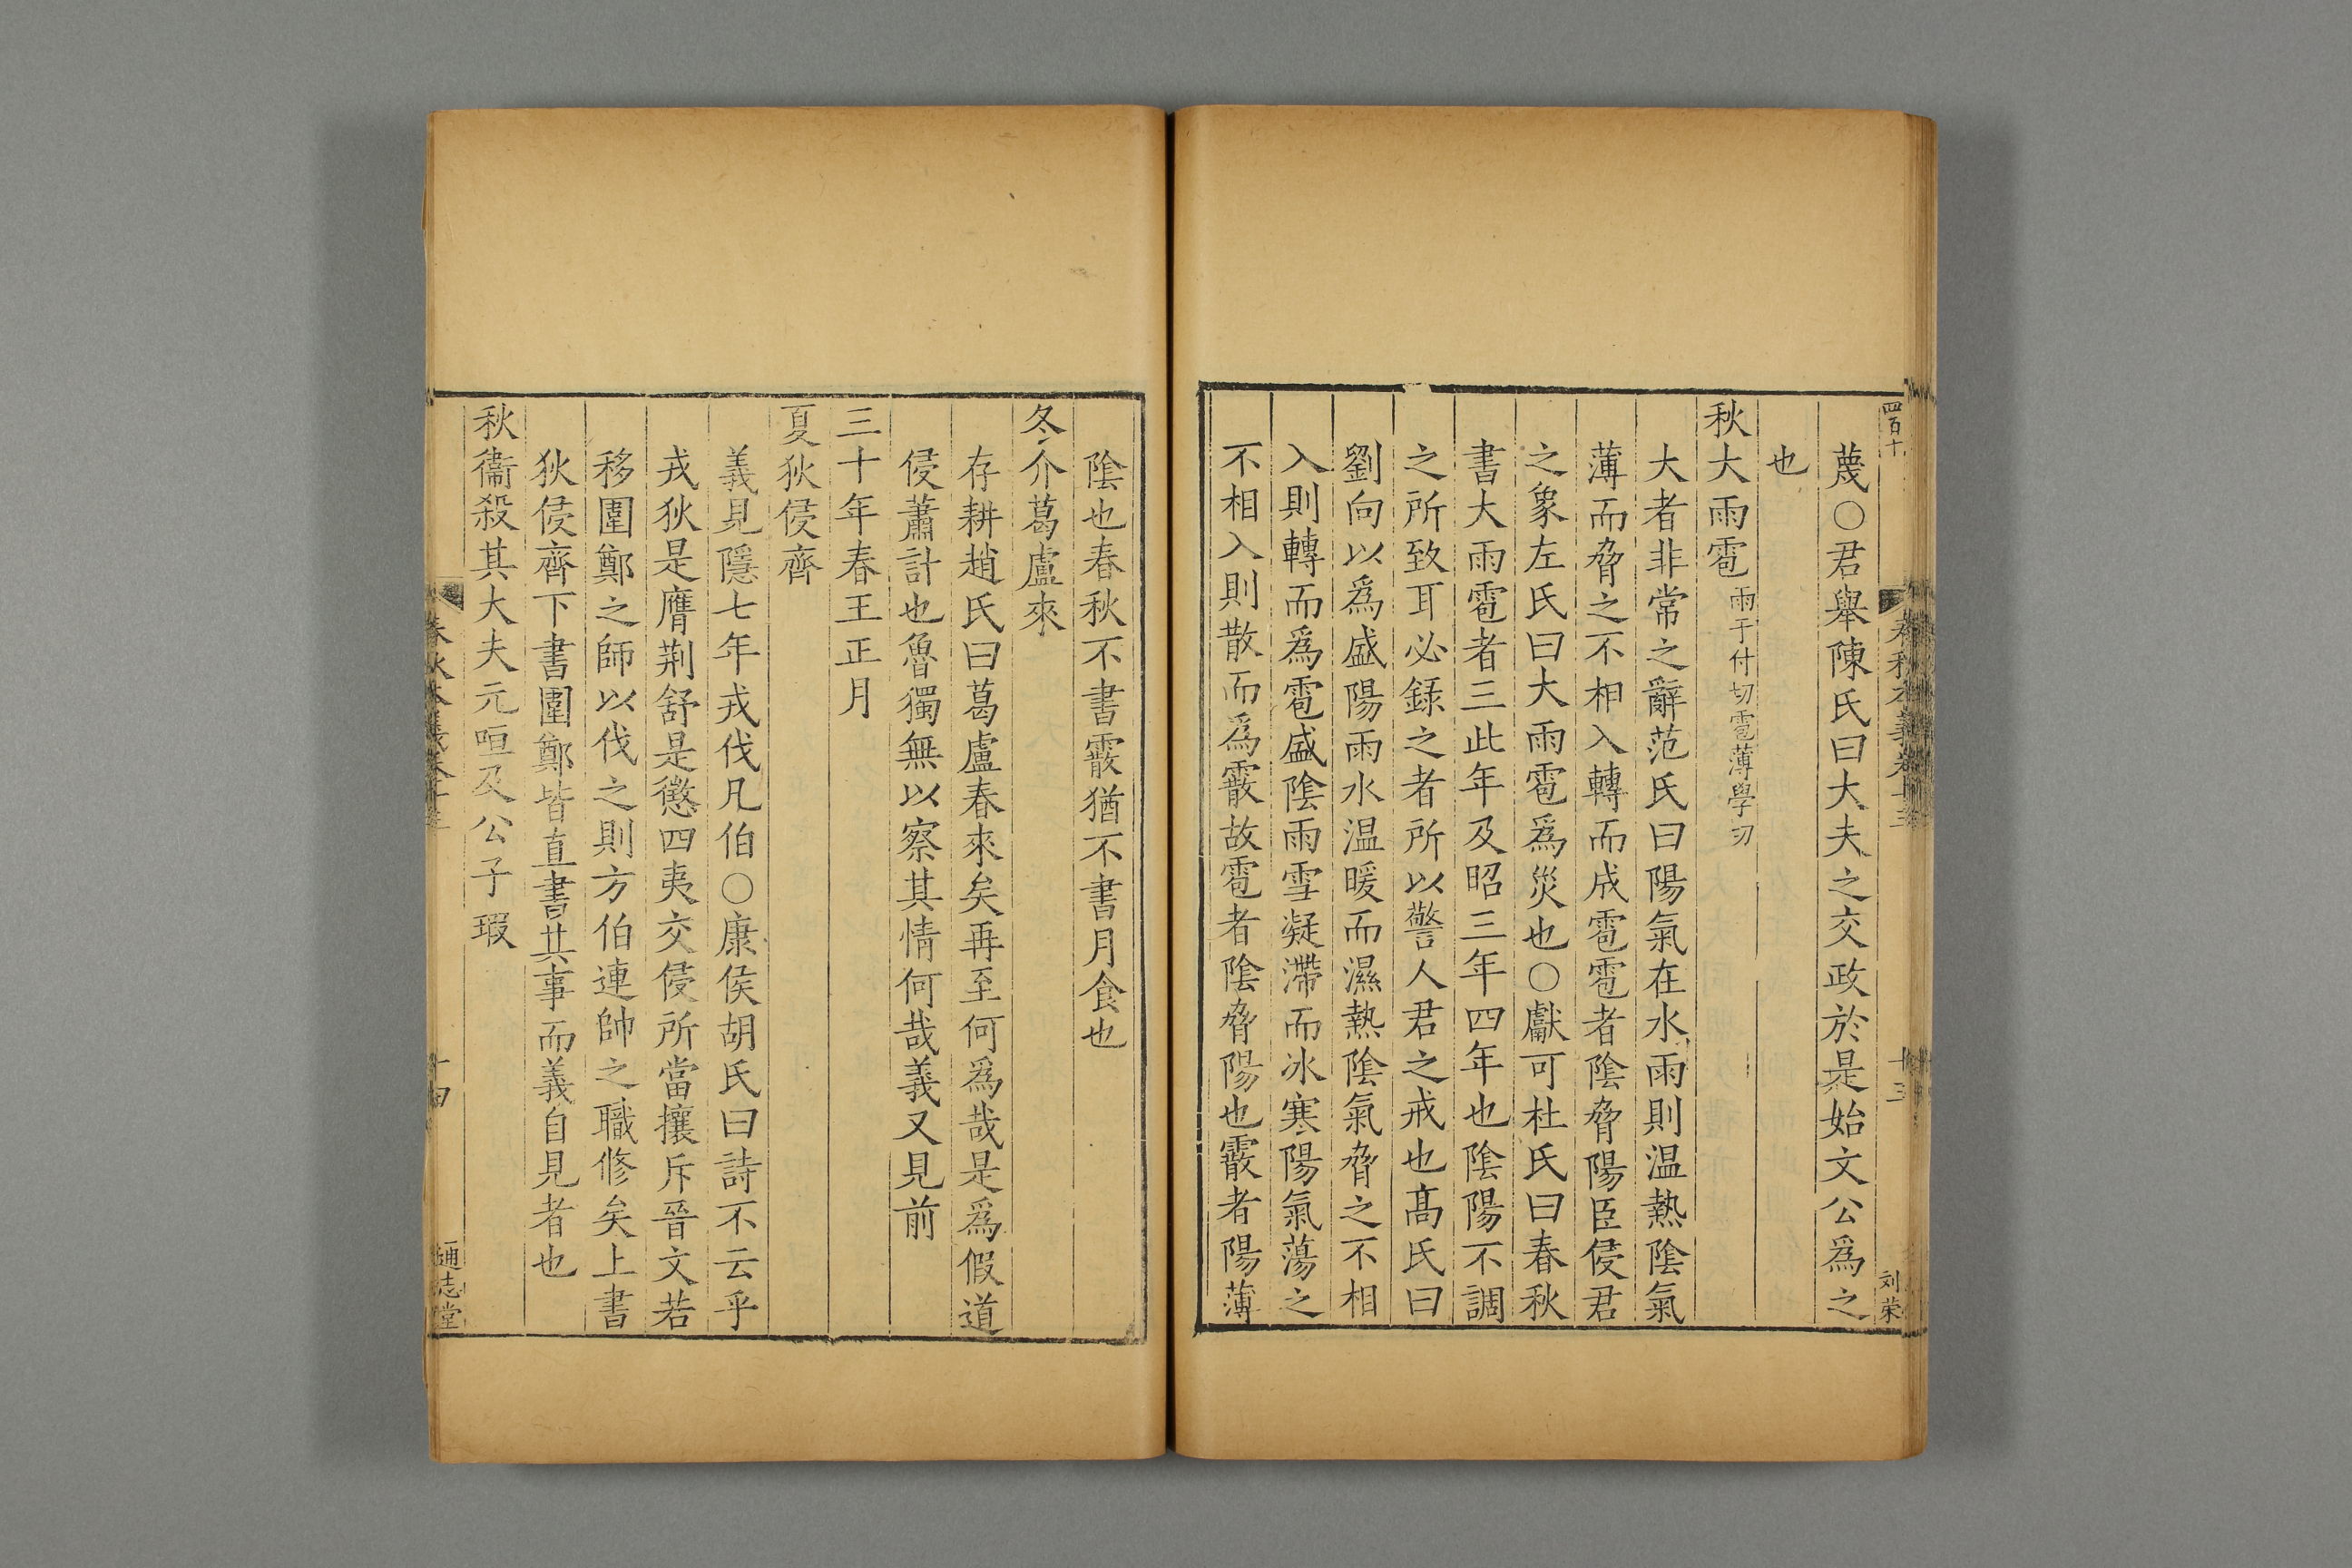 四百十
春秋本義卷十三
十三
刘荣
蔑○君舉陳氏曰大夫之交政於是始文公爲之
也
秋大雨雹雨于付切雹薄學切
大者非常之辭范氏曰陽氣在水雨則温熱陰氣
薄而脅之不相入轉而成雹雹者陰脅陽臣侵君
之象左氏曰大雨雹爲災也○獻可杜氏曰春秋
書大雨雹者三此年及昭三年四年也陰陽不調
之所致耳必録之者所以警人君之戒也髙氏曰
劉向以爲盛陽雨水温暖而濕熱陰氣脅之不相
入則轉而爲雹盛陰雨雪凝滯而冰寒陽氣蕩之
不相入則散而爲霰故雹者陰脅陽也霰者陽薄
陰也春秋不書霰猶不書月食也
冬介葛盧來
存耕趙氏曰葛盧春來矣再至何爲哉是爲假道
侵蕭計也魯獨無以察其情何哉義又見前
三十年春王正月
夏狄侵齊
義見隱七年戎伐凡伯○康侯胡氏曰詩不云乎
戎狄是膺荆舒是懲四夷交侵所當攘斥晉文若
移圍鄭之師以伐之則方伯連帥之職修矣上書
狄侵齊下書圍鄭皆直書其事而義自見者也
秋衞殺其大夫元咺及公子瑕
春秋本義卷十三
十四
通志堂